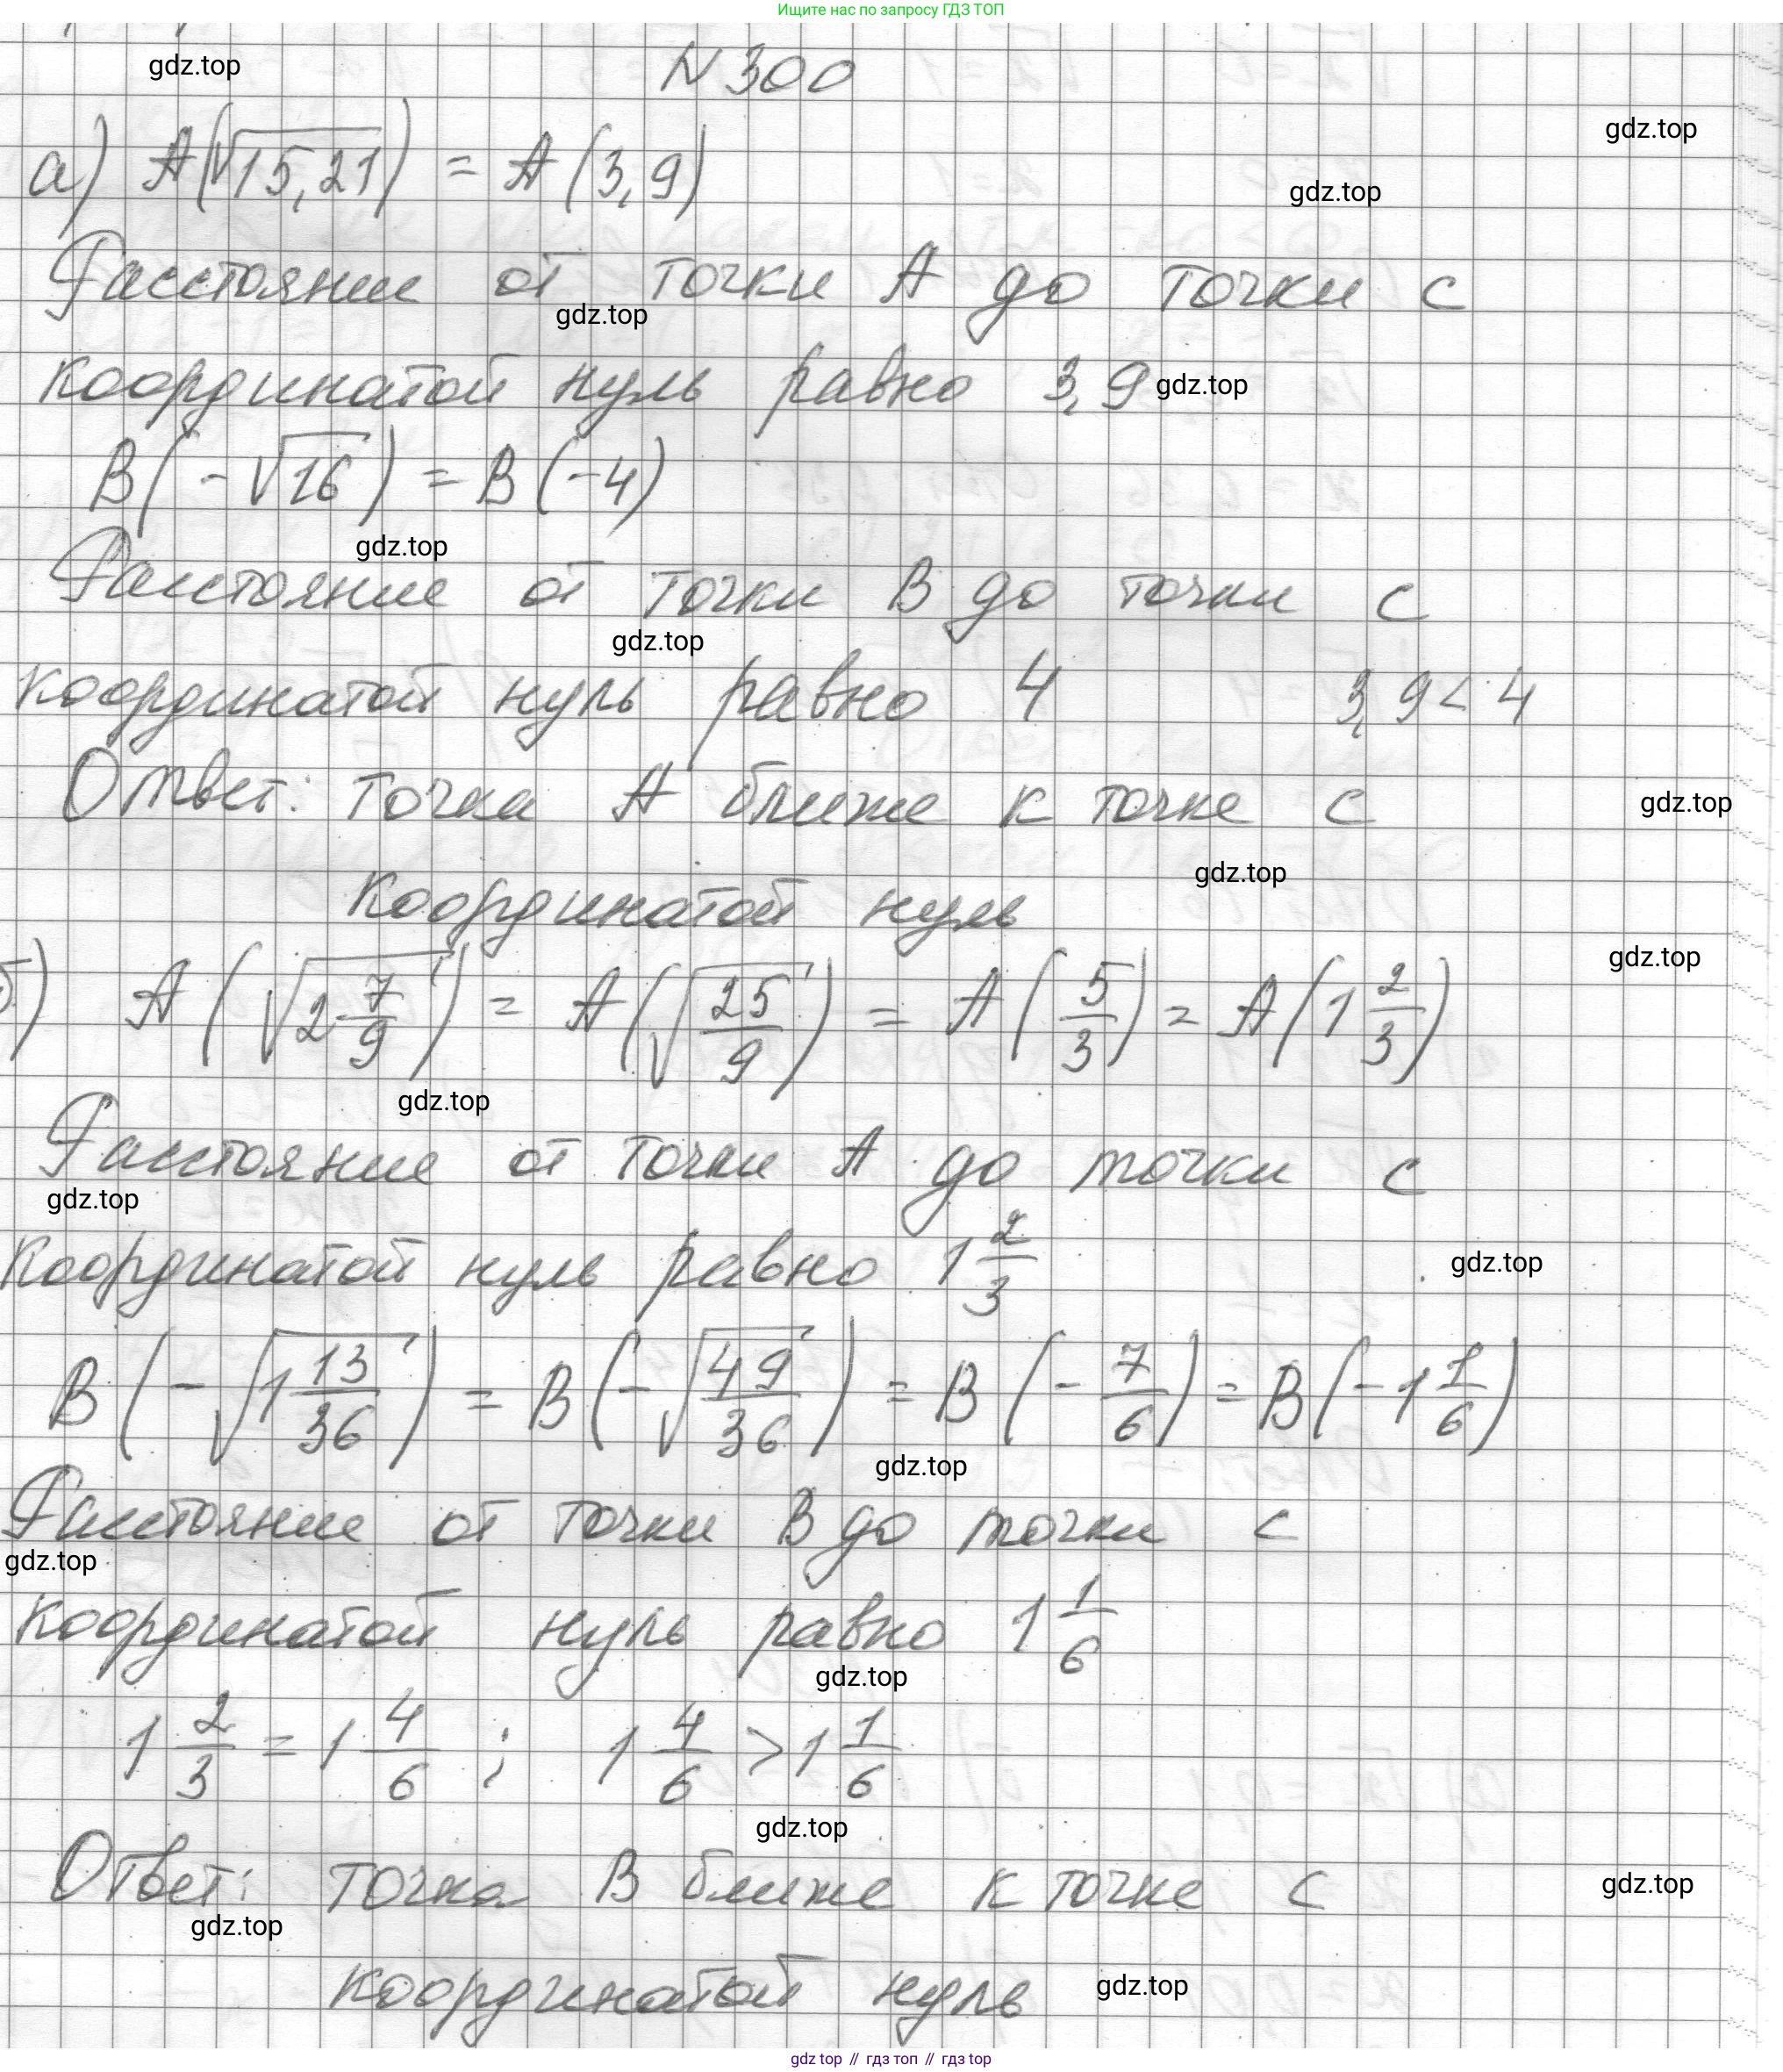 Ищите нас по запросу ГДЗ ТОП
gdz.top
N 300
gdz.top
а) A(√15,21) = A(3,9)
gdz.top
Расстояние от точки A до точки с
gdz.top
координатой нуль равно 3,9
gdz.top
B(-√16) = B(-4)
gdz.top
Расстояние от точки B до точки с
gdz.top
координатой нуль равно 4 3,9 < 4
Ответ: точка A ближе к точке с
gdz.top
gdz.top
координатой нуль
gdz.top
б) A(√2 7/9) = A(√25/9) = A(5/3) = A(1 2/3)
gdz.top
Расстояние от точки A до точки с
gdz.top
координатой нуль равно 1 2/3
gdz.top
B(-√1 13/36) = B(-√49/36) = B(-7/6) = B(-1 1/6)
gdz.top
Расстояние от точки B до точки с
gdz.top
координатой нуль равно 1 1/6
gdz.top
1 2/3 = 1 4/6 ; 1 4/6 > 1 1/6
gdz.top
Ответ: точка B ближе к точке с
gdz.top
gdz.top
координатой нуль
gdz.top
gdz top // гдз топ // гдз top